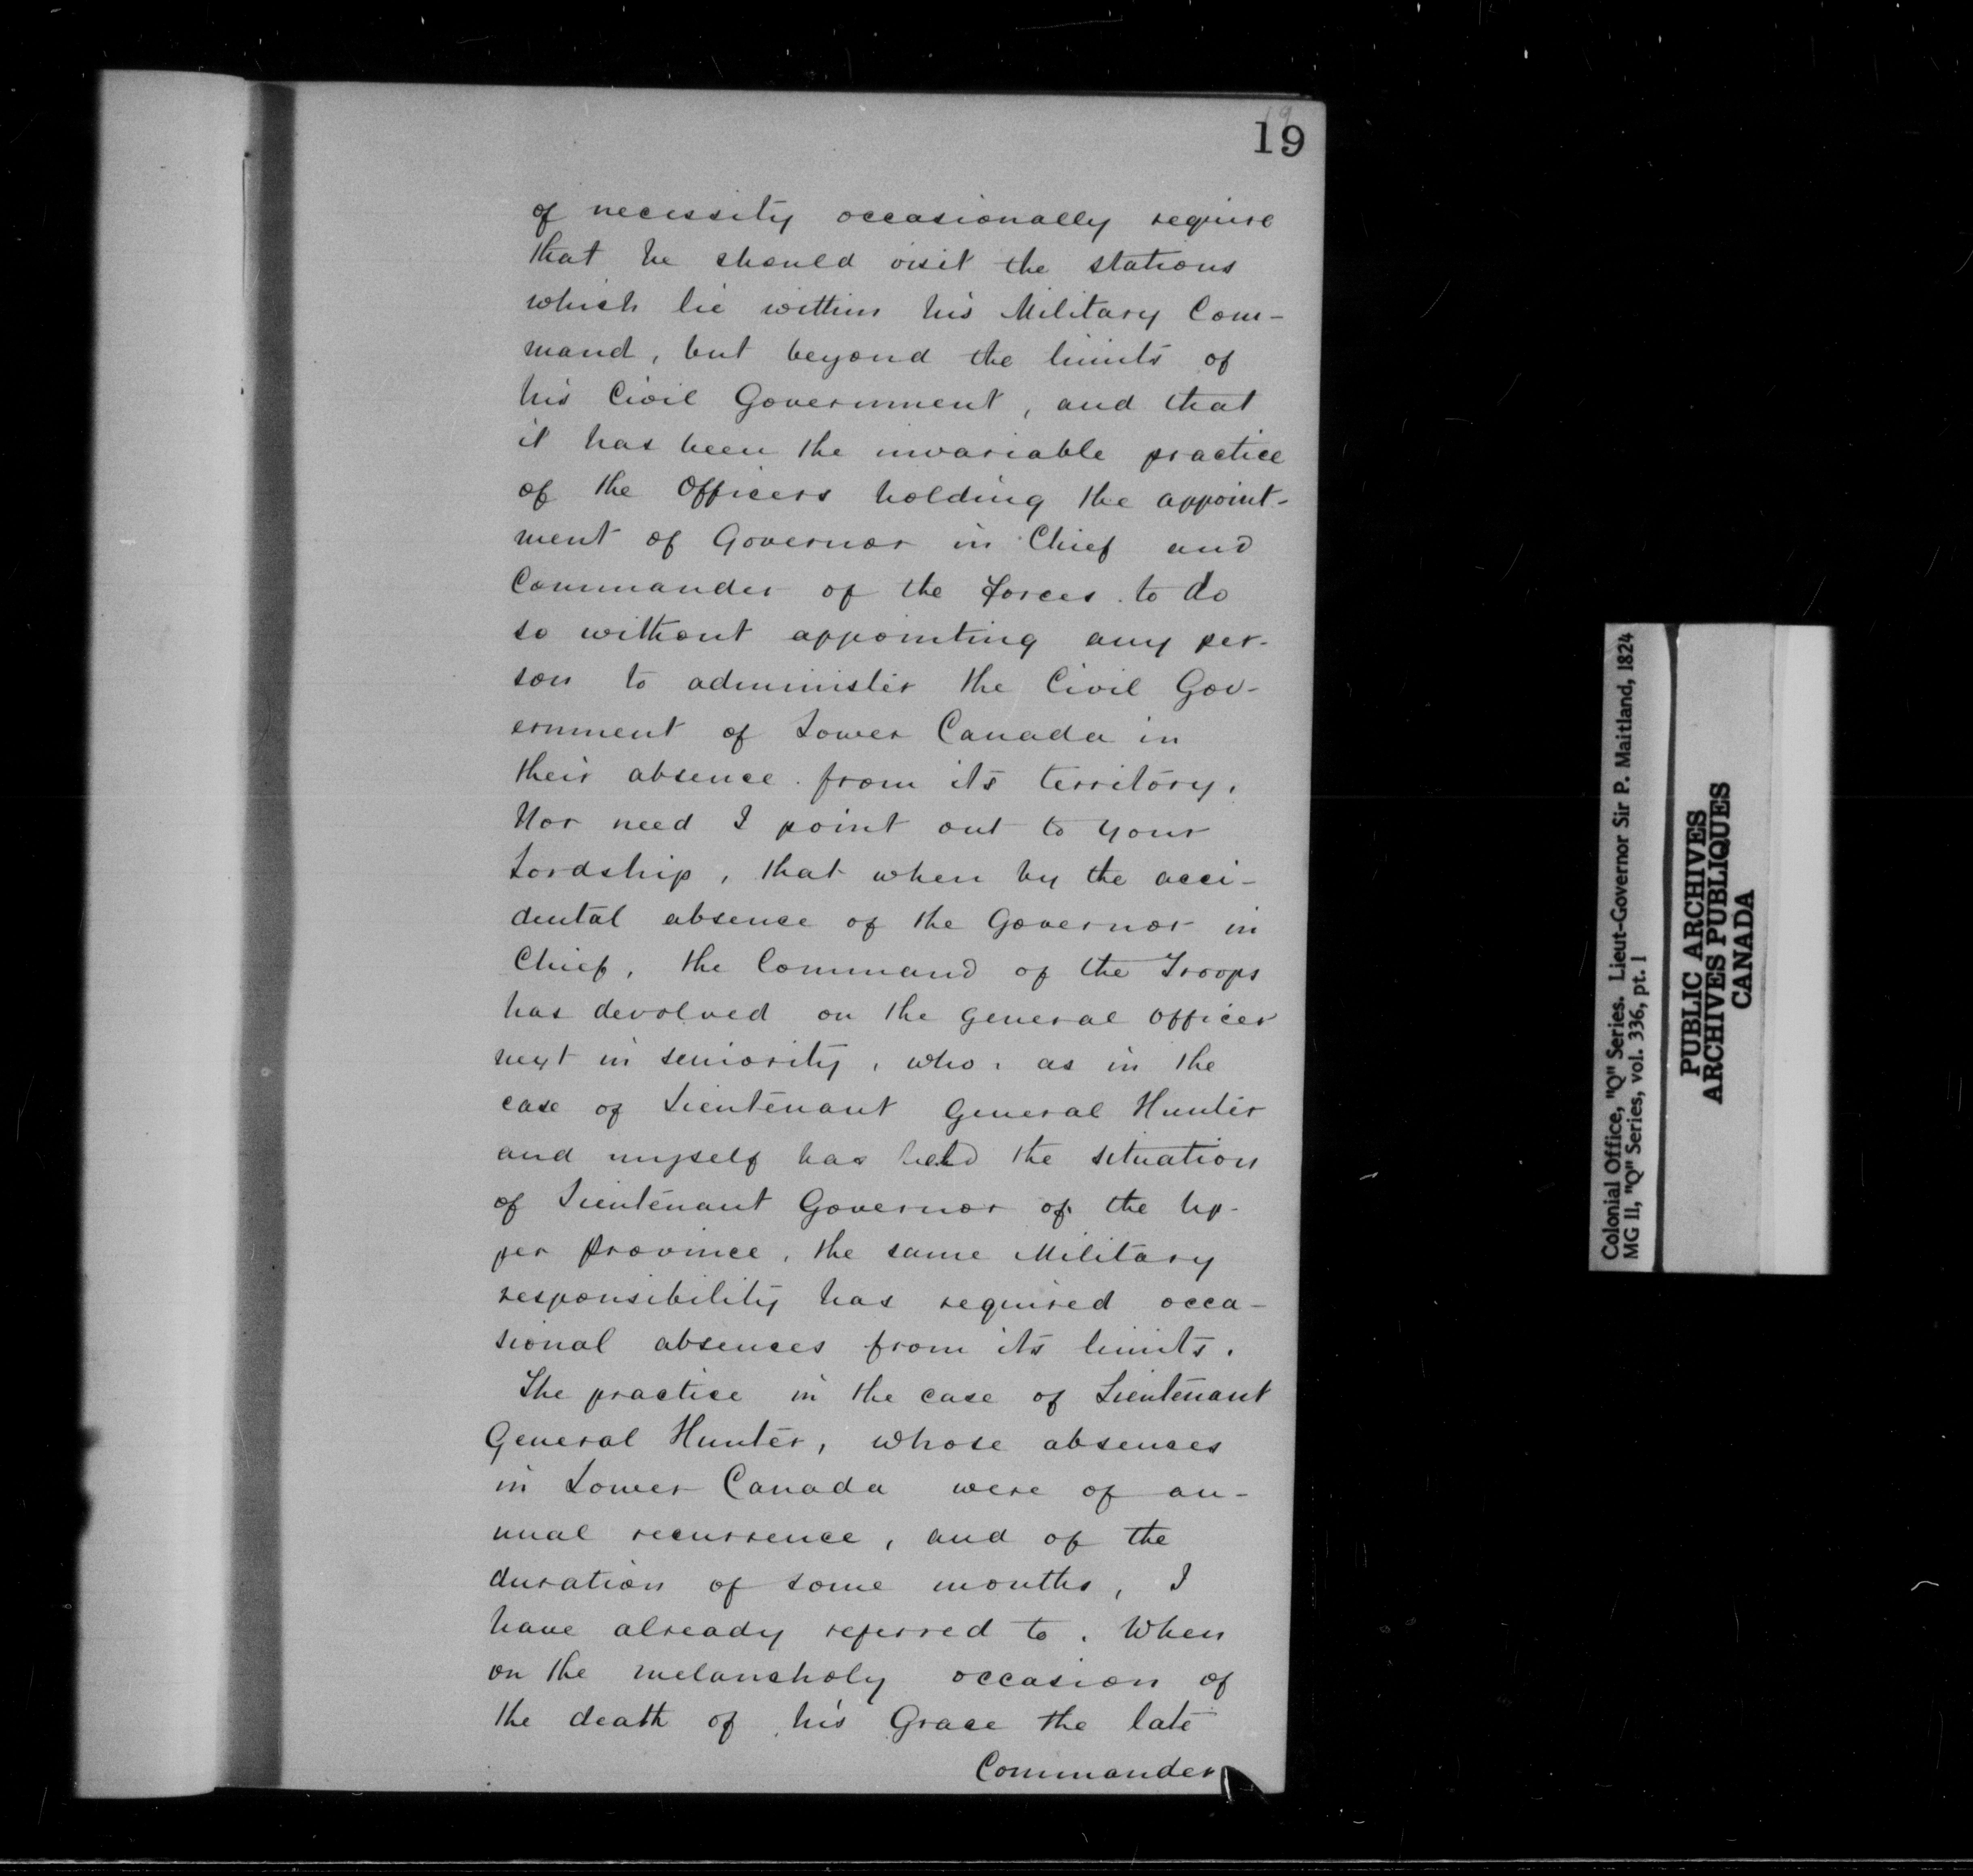 19
19
of necessity occasionally require
that he should visit the stations
which lie within his Military Com-
mand, but beyond the limits of
his Civil Government, and that
it has been the invariable practice
of the Officers holding the appoint-
ment of Governor in Chief and
Commander of the forces to do
so without appointing any per-
son to administer the Civil Gov-
ernment of Lower Canada in
their absence from its territory.
Nor need I point out to your
Lordship, that when by the acci-
dental absence of the Governor in
Chief, the Command of the Troops
has devolved on the general officer
next in seniority, who, as in the
case of Lieutenant General Hunter
and myself has held the situation
of Lieutenant Governor of the Up-
per Province, the same Military
responsibility has required occa-
sional absences from its limits.
The practice in the case of Lieutenant
General Hunter, whose absences
in Lower Canada were of an-
nual recurrence, and of the
duration of some months, I
have already referred to. When
on the melancholy occasion of
the death of his Grace the late
Commander
Colonial Office, "Q" Series. Lieut-Governor Sir P. Maitland, 1824
MG 11, "Q" Series, vol. 336, pt. 1
PUBLIC ARCHIVES
ARCHIVES PUBLIQUES
CANADA